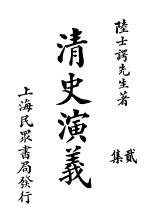 陸士諤先生著
貳集
清史演義
上海民眾書局發行